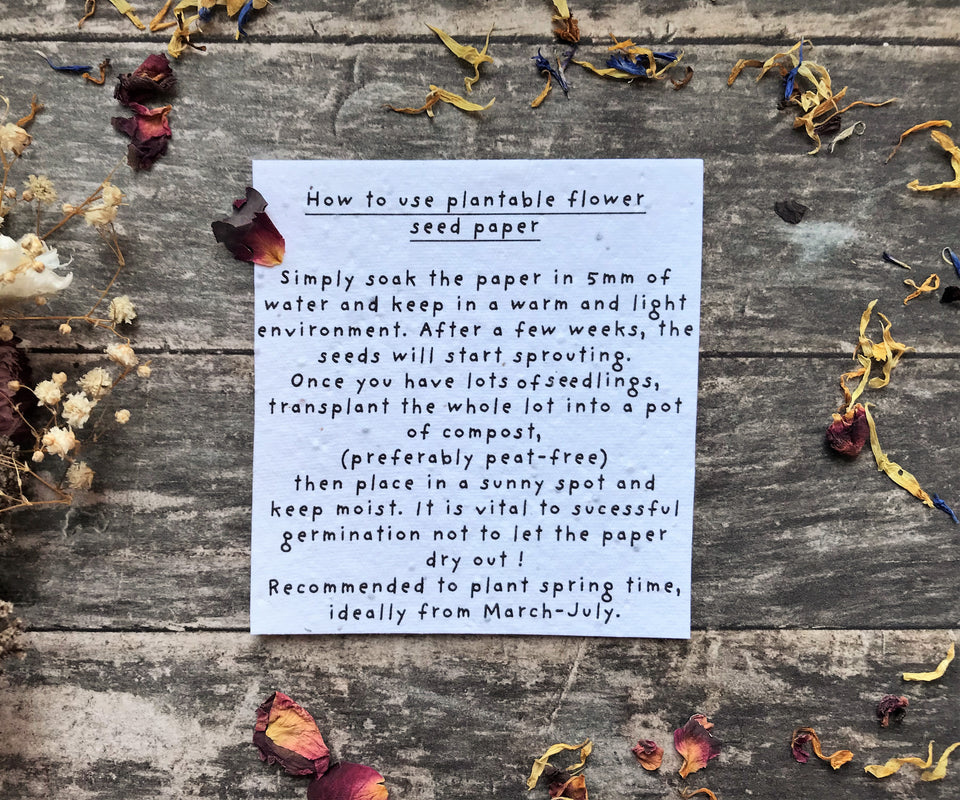 How to use plantable flower
seed paper
Simply soak the paper in 5mm of
water and keep in a warm and light
environment. After a few weeks, the
seeds will start sprouting.
Once you have lots of seedlings,
transplant the whole lot into a pot
of compost,
(preferably peat-free)
then place in a sunny spot and
keep moist. It is vital to sucessful
germination not to let the paper
dry out !
Recommended to plant spring time,
ideally from March-July.